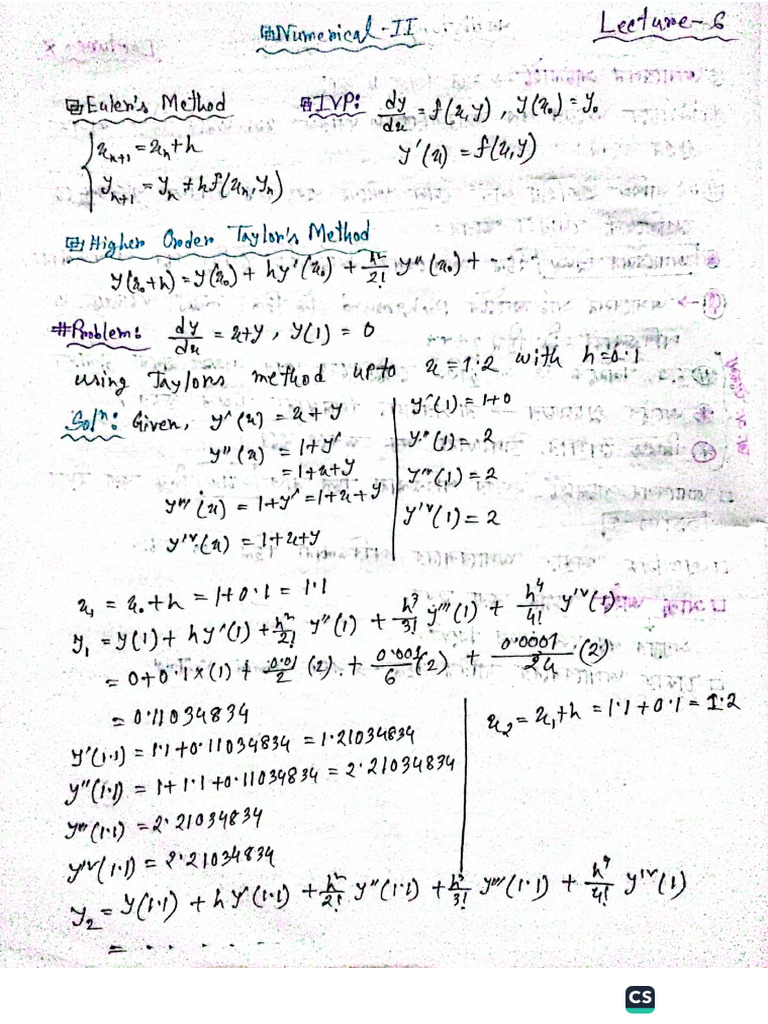 Numerical-II
Lecture-6
Euler's Method
x_{n+1} = x_n + h
y_{n+1} = y_n + hf(x_n, y_n)
IVP: dy/dx = f(x, y), y(x₀) = y₀
y'(x) = f(x, y)
Higher Order Taylor's Method
y(x₀+h) = y(x₀) + hy'(x₀) + h²/2! y''(x₀) + -
#Problem: dy/dx = x+y, y(1) = 0
using Taylors method upto x = 1.2 with h=0.1
Solⁿ: Given, y'(x) = x + y
y''(x) = 1+y'
= 1+x+y
y'''(x) = 1+y' = 1+x+y
y'ᵛ(x) = 1+x+y
y'(1) = 1+0
y''(1) = 2
y'''(1) = 2
y'ᵛ(1) = 2
x₁ = x₀+h = 1+0.1 = 1.1
y₁ = y(1) + hy'(1) + h²/2! y''(1) + h³/3! y'''(1) + h⁴/4! y'ᵛ(1)
= 0+0.1×(1) + 0.01/2 (2) + 0.001/6 (2) + 0.0001/24 (2)
= 0.11034834
y'(1.1) = 1.1+0.11034834 = 1.21034834
y''(1.1) = 1+1.1+0.11034834 = 2.21034834
y'''(1.1) = 2.21034834
y'ᵛ(1.1) = 2.21034834
x₂ = x₁+h = 1.1+0.1 = 1.2
y₂ = y(1.1) + hy'(1.1) + h²/2! y''(1.1) + h³/3! y'''(1.1) + h⁴/4! y'ᵛ(1)
= . . . . .
CS